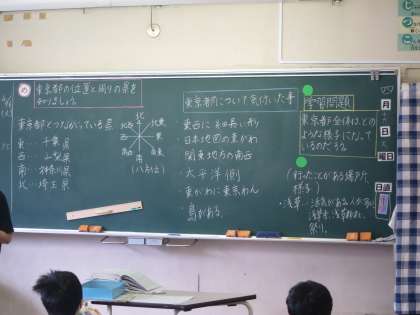 め
東京都の位置と周りの県を
知りましょう。
東京都とつながっている県
東…千葉県
西…山梨県
南…神奈川県
北…埼玉県
北
北西
北東
西
東
南西
南東
南
(八方位)
東京都について気付いた事
・東西に細長い形
・日本地図の真ん中
・関東地方の南西
・太平洋側
・東がわに東京わん
・島がある。
学習問題
東京都全体はどの
ような様子になって
いるのだろう。
(行ったことがある場所、
様子)
・浅草
祭り。
月
日
曜日
日直